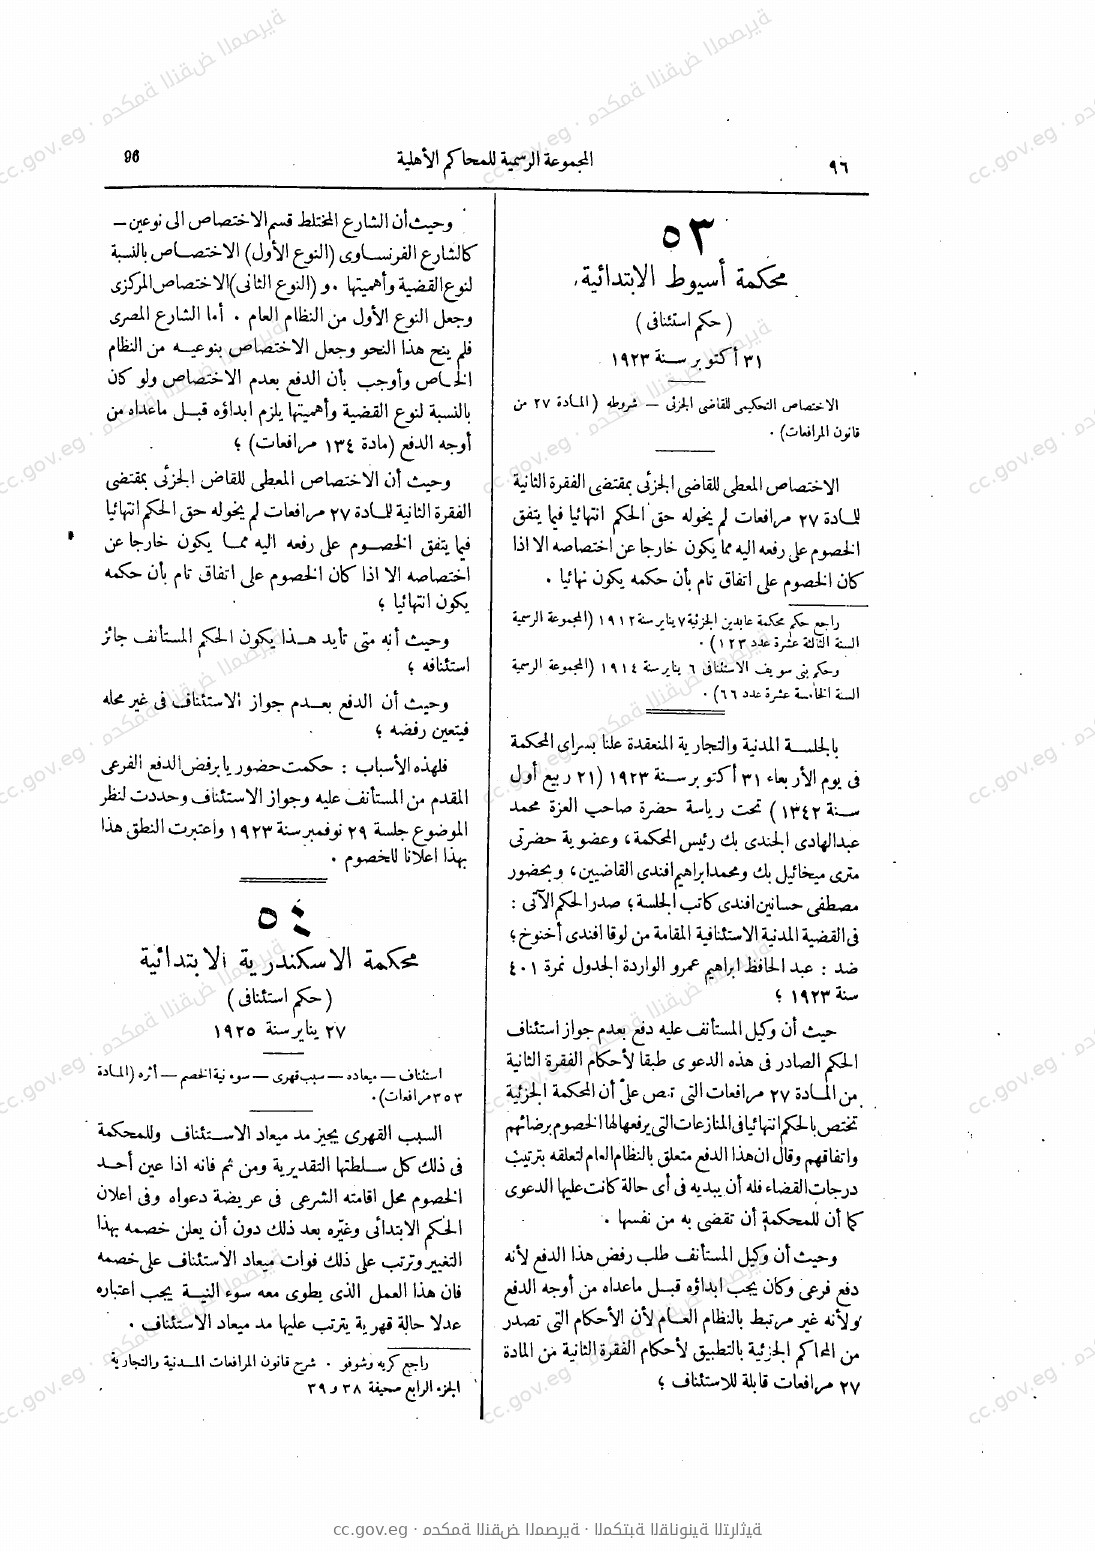 ٩٦
المجموعة الرسمية للمحاكم الأهلية
96
٥٣
محكمة أسيوط الابتدائية
(حكم استئنافى)
٣١ أكتوبر سنة ١٩٢٣
الاختصاص التحكيمى للقاضى الجزئى — شروطه (المادة ٢٧ من
قانون المرافعات) .
الاختصاص المعطى للقاضى الجزئى بمقتضى الفقرة الثانية
للمادة ٢٧ مرافعات لم يخوله حق الحكم انتهائيا فيما يتفق
الخصوم على رفعه اليه مما يكون خارجا عن اختصاصه الا اذا
كان الخصوم على اتفاق تام بأن حكمه يكون نهائيا .
راجع حكم محكمة عابدين الجزئية ٧ يناير سنة ١٩١٢ (المجموعة الرسمية
السنة الثالثة عشرة عدد ١٢٣) .
وحكم بنى سويف الاستئنافى ٦ يناير سنة ١٩١٤ (المجموعة الرسمية
السنة الخامسة عشرة عدد ٦٦) .
بالجلسة المدنية والتجارية المنعقدة علنا بسراى المحكمة
فى يوم الأربعاء ٣١ أكتوبر سنة ١٩٢٣ (٢١ ربيع أول
سنة ١٣٤٢) تحت رياسة حضرة صاحب العزة محمد
عبدالهادى الجندى بك رئيس المحكمة، وعضوية حضرتى
مترى ميخائيل بك ومحمد ابراهيم افندى القاضيين، وبحضور
مصطفى حسانين افندى كاتب الجلسة؛ صدر الحكم الآتى :
فى القضية المدنية الاستئنافية المقامة من لوقا افندى أخنوخ؛
ضد : عبد الحافظ ابراهيم عمرو الواردة الجدول نمرة ٤٠١
سنة ١٩٢٣ ؛
حيث أن وكيل المستأنف عليه دفع بعدم جواز استئناف
الحكم الصادر فى هذه الدعوى طبقا لأحكام الفقرة الثانية
من المادة ٢٧ مرافعات التى تنص على أن المحكمة الجزئية
تختص بالحكم انتهائيا فى المنازعات التى يرفعها لها الخصوم برضائهم
واتفاقهم وقال ان هذا الدفع متعلق بالنظام العام لتعلقه بترتيب
درجات القضاء فله أن يبديه فى أى حالة كانت عليها الدعوى
كما أن للمحكمة أن تقضى به من نفسها .
وحيث أن وكيل المستأنف طلب رفض هذا الدفع لأنه
دفع فرعى وكان يجب ابداؤه قبل ماعداه من أوجه الدفع
ولأنه غير مرتبط بالنظام العام لأن الأحكام التى تصدر
من المحاكم الجزئية بالتطبيق لأحكام الفقرة الثانية من المادة
٢٧ مرافعات قابلة للاستئناف ؛
وحيث أن الشارع المختلط قسم الاختصاص الى نوعين —
كالشارع الفرنساوى (النوع الأول) الاختصاص بالنسبة
لنوع القضية وأهميتها . و (النوع الثانى) الاختصاص المركزى
وجعل النوع الأول من النظام العام . أما الشارع المصرى
فلم ينح هذا النحو وجعل الاختصاص بنوعيه من النظام
الخاص وأوجب بأن الدفع بعدم الاختصاص ولو كان
بالنسبة لنوع القضية وأهميتها يلزم ابداؤه قبل ماعداه من
أوجه الدفع (مادة ١٣٤ مرافعات) ؛
وحيث أن الاختصاص المعطى للقاض الجزئى بمقتضى
الفقرة الثانية للمادة ٢٧ مرافعات لم يخوله حق الحكم انتهائيا
فيما يتفق الخصوم على رفعه اليه مما يكون خارجا عن
اختصاصه الا اذا كان الخصوم على اتفاق تام بأن حكمه
يكون انتهائيا ؛
وحيث أنه متى تأيد هذا يكون الحكم المستأنف جائز
استئنافه ؛
وحيث أن الدفع بعدم جواز الاستئناف فى غير محله
فيتعين رفضه ؛
فلهذه الأسباب : حكمت حضوريا برفض الدفع الفرعى
المقدم من المستأنف عليه وجواز الاستئناف وحددت لنظر
الموضوع جلسة ٢٩ نوفمبر سنة ١٩٢٣ واعتبرت النطق هذا
بهذا اعلانا للخصوم .
٥٤
محكمة الاسكندرية الابتدائية
(حكم استئنافى)
٢٧ يناير سنة ١٩٢٥
استئناف — ميعاده — سبب قهرى — سوء نية الخصم — أثره (المادة
٣٥٣ مرافعات) .
السبب القهرى يجيز مد ميعاد الاستئناف وللمحكمة
فى ذلك كل سلطتها التقديرية ومن ثم فانه اذا عين أحد
الخصوم محل اقامته الشرعى فى عريضة دعواه وفى اعلان
الحكم الابتدائى وغيّره بعد ذلك دون أن يعلن خصمه بهذا
التغيير وترتب على ذلك فوات ميعاد الاستئناف على خصمه
فان هذا العمل الذى يطوى معه سوء النية يجب اعتباره
عدلا حالة قهرية يترتب عليها مد ميعاد الاستئناف .
راجع كريه وشوفو . شرح قانون المرافعات المدنية والتجارية
الجزء الرابع صحيفة ٣٨ و ٣٩
cc.gov.eg · محكمة النقض المصرية · المكتبة القانونية التراثية